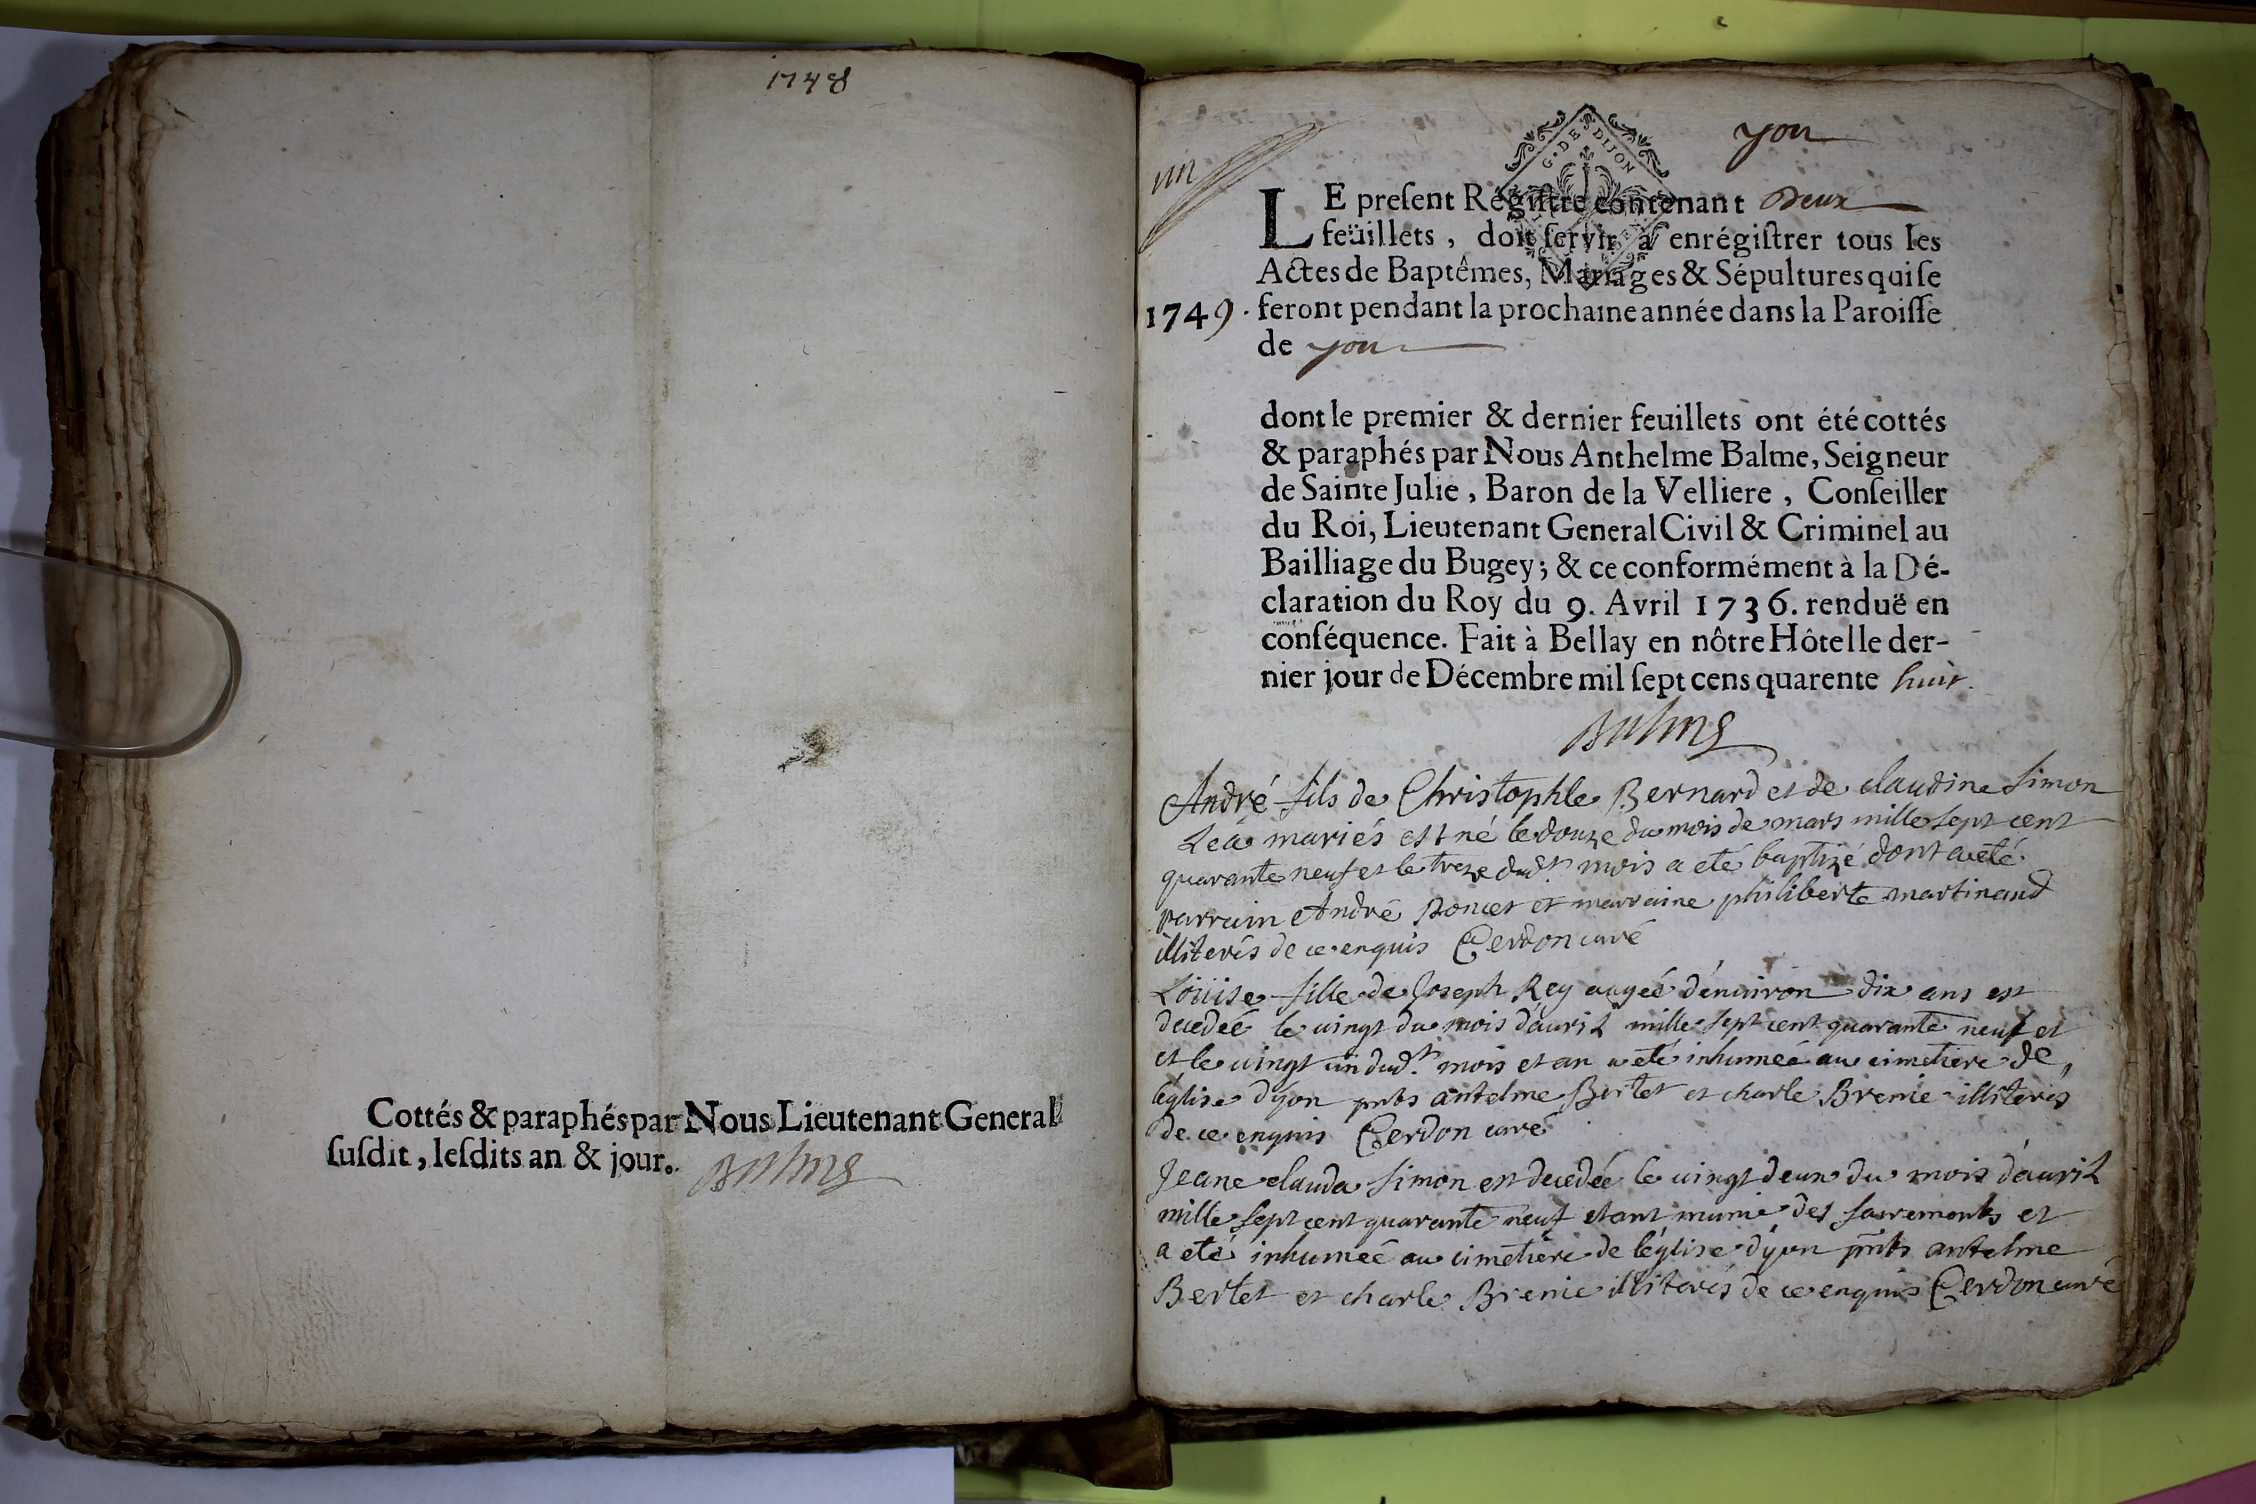 1748
Cottés & paraphés par Nous Lieutenant General
ſuſdit, leſdits an & jour.
Balme
yon
un
G. DE DIJON
LE preſent Régiſtre contenant Deux
feüillets, doit ſervir à enrégiſtrer tous les
Actes de Baptêmes, Mariages & Sépultures qui ſe
1749. feront pendant la prochaine année dans la Paroiſſe
de yon
dont le premier & dernier feuillets ont été cottés
& paraphés par Nous Anthelme Balme, Seigneur
de Sainte Julie, Baron de la Velliere, Conſeiller
du Roi, Lieutenant General Civil & Criminel au
Bailliage du Bugey; & ce conformément à la Dé-
claration du Roy du 9. Avril 1736. renduë en
conſéquence. Fait à Bellay en nôtre Hôtel le der-
nier jour de Décembre mil ſept cens quarente huit.
Balme
André fils de Christophle Bernard et de claudine Simon
mariés est né le douze du mois de mars mille sept cent
quarante neuf et le treze dudt mois a eté baptizé dont a eté
parrain André Poncet et marraine philiberte martinand
illiterés de ce enquis Cerdon curé
Loüise fille de Joseph Rey augeé d'énuiron dix ans est
decedeé le uingt du mois d'auril mille sept cent quarante neuf et
et le uingt un dudt. mois et an a eté inhumeé au cimetiere de
léglise d'yon pnts antelme Bertet et charle Brenie illiterés
de ce enquis Cerdon curé
Jeane clauda Simon est decedée le uingt deux du mois d'auril
mille sept cent quarante neuf etant munie des sacrements et
a eté inhumeé au cimetiere de léglise d'yon pnts antelme
Bertet et charle Brenie illiterés de ce enquis Cerdon curé